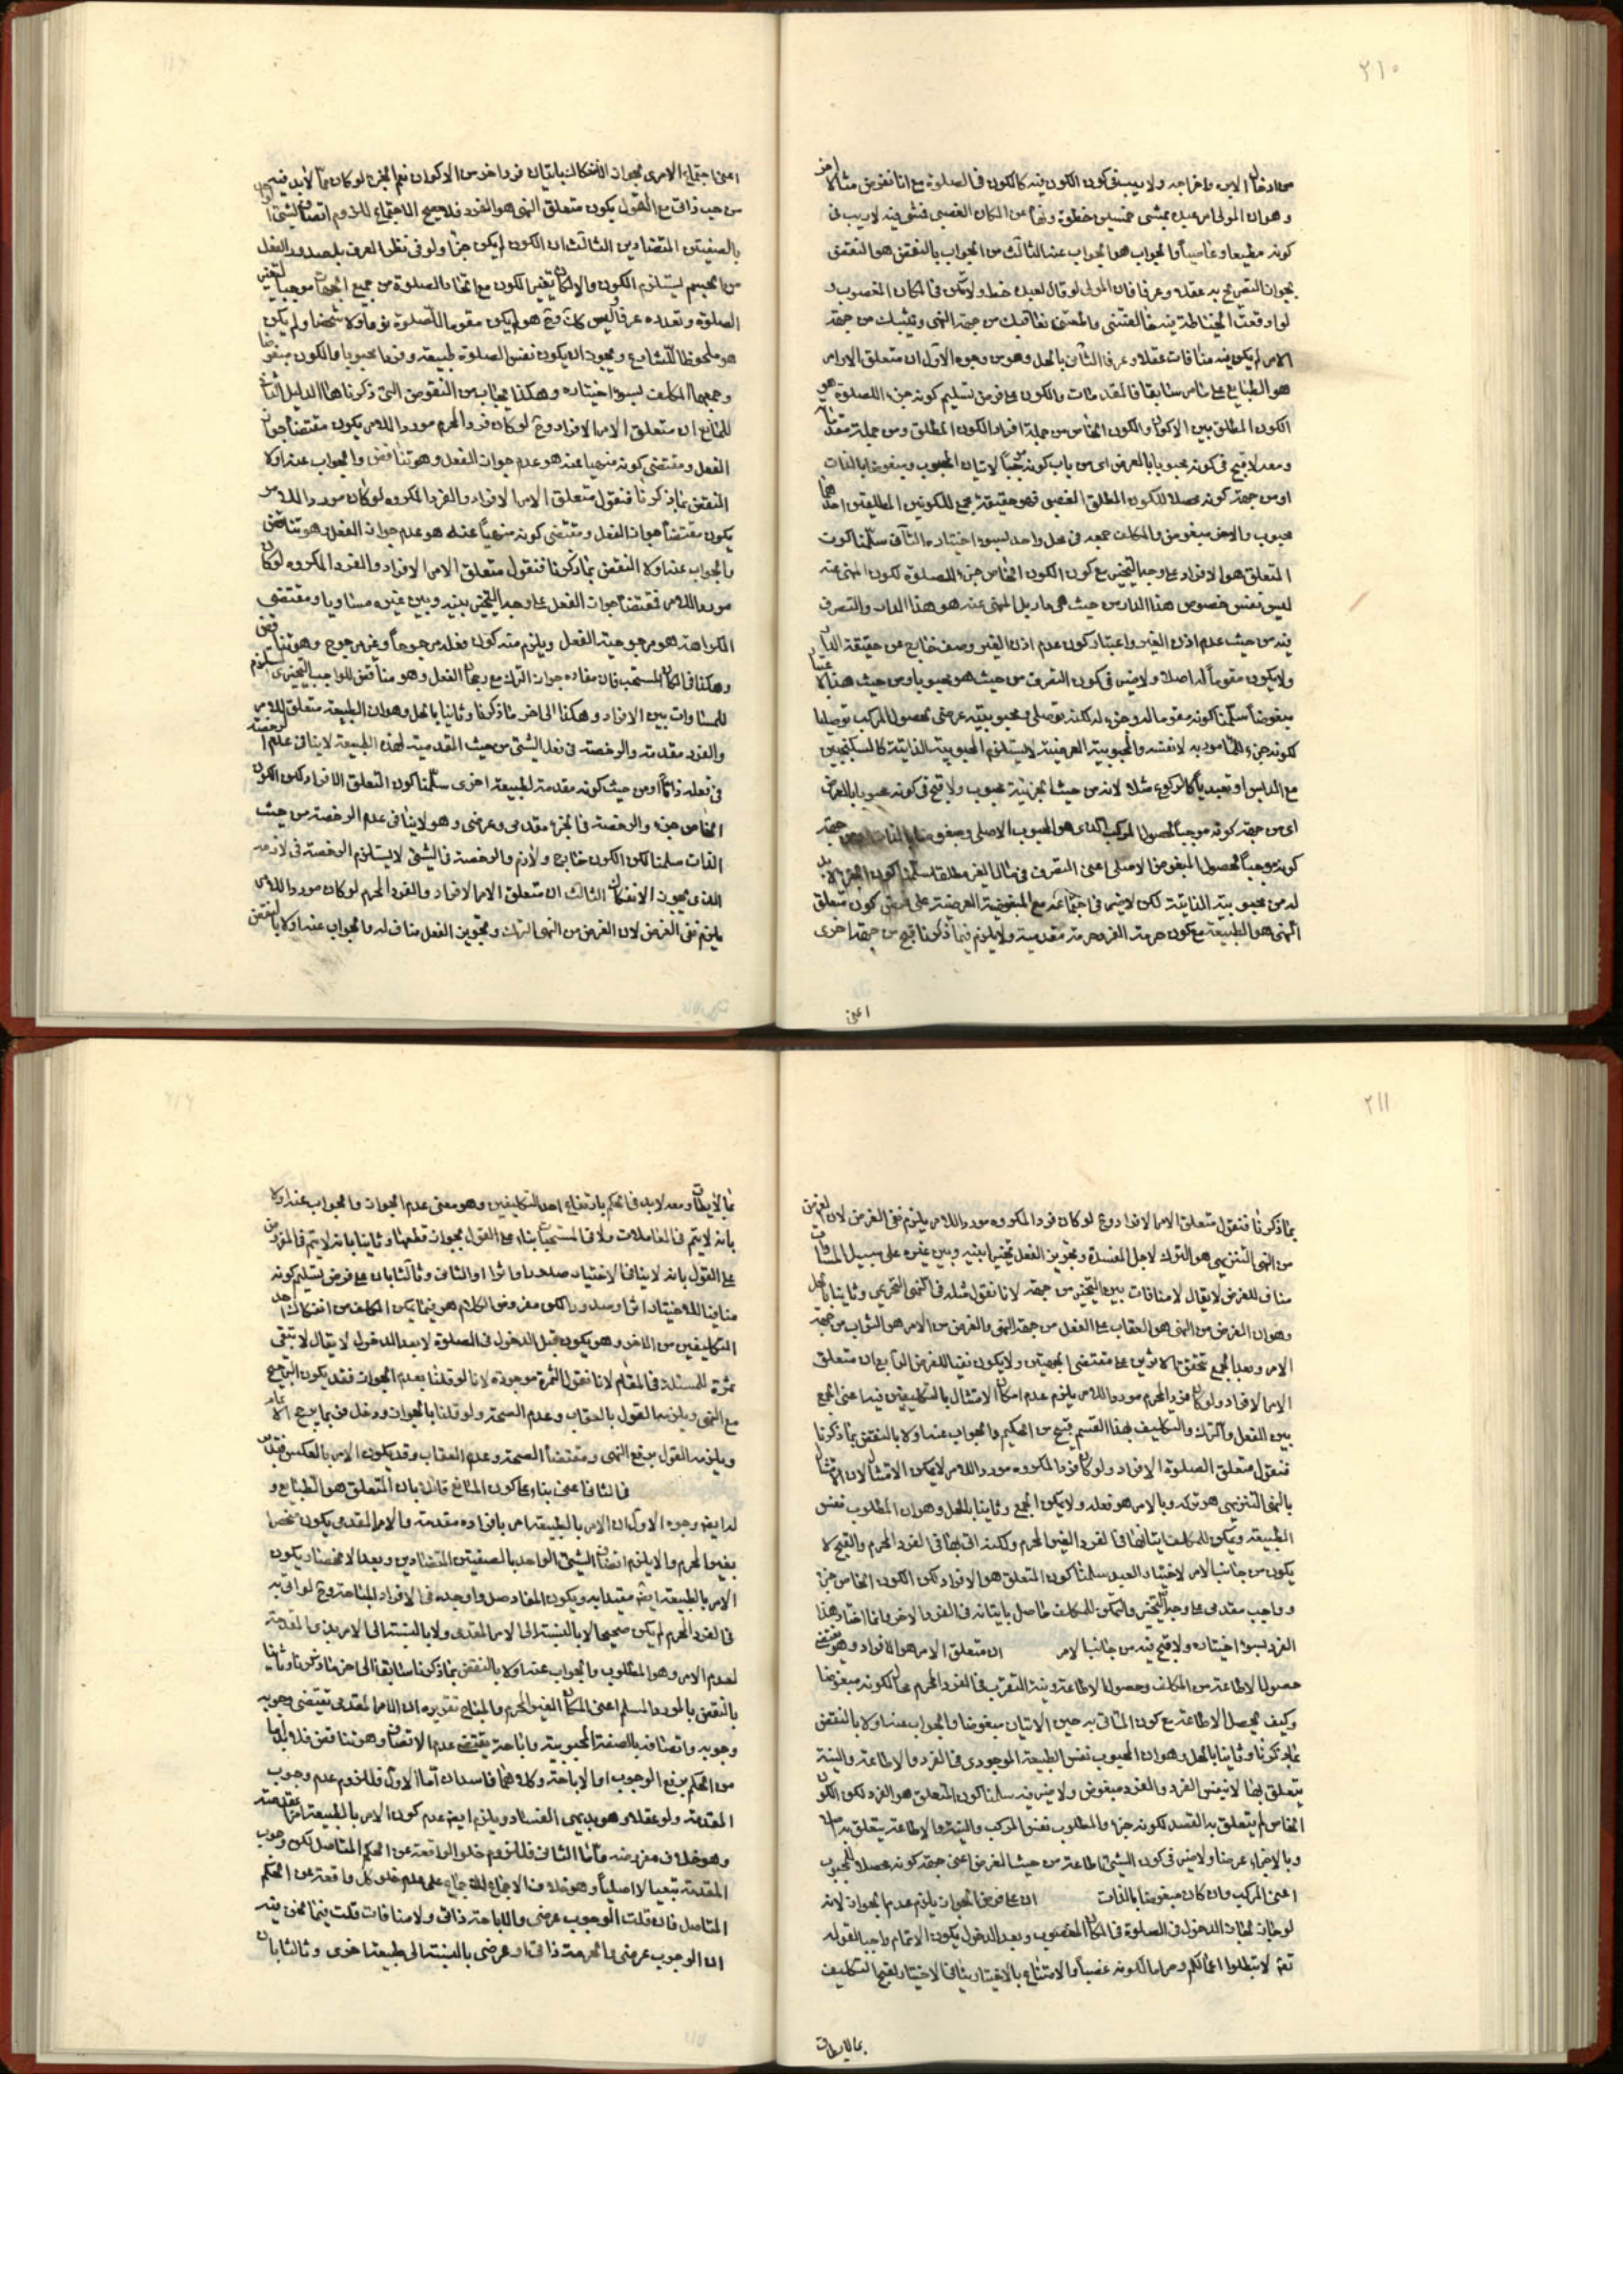 ٢١٠
من ادخال الابرة واخراجه ولا يبقى كون الكون فيه كالكون فى الصلوة مع انا نفرض مثالا اخر
وهو ان المولى امر عبده بمشى خمسين خطوة ونهاه عن المكان الغصبى فمشى فيه لا ريب فى
كونه مطيعا وعاصيا والجواب هو الجواب عنه الثالث من الجواب بالنقض هو النقض
بجواز التصريح به عقلا وعرفا فان المولى لو قال لعبده خط ولا تكن فى المكان المغصوب و
لو اوقعت الخياطة فيه خالفتنى واطعتنى نعاقبك من جهة النهى ونثيبك من جهة
الامر لم يكن فيه منافات عقلا وعرفا الثانى بالحل وهو من وجوه الاول ان متعلق الاوامر
هو الطبايع على ما مر سابقا فالمقدمات والكون على فرض تسليم كونه جزء للصلوة هو
الكون المطلق بين الاكوان والكون الخاص من جملة افراد الكون المطلق ومن جملة مقدماته
ومعه لا قبح فى كونه محبوبا بالعرض اى من باب كونه موجبا لاتيان المحبوب ومبغوضا بالذات
او من جهة كونه محصلا للكون المطلق الغصبى فهو حقيقة مجمع للكونين المطلقين احدهما
محبوب والاخر مبغوض والمكلف جمعه فى محل واحد لسوء اختياره الثانى سلمنا كون
المتعلق هو الافراد على وجه التخيير مع كون الكون الخاص جزء للصلوة لكون المنهى عنه
ليس نفس خصوص هذا الدار من حيث هى دار بل المنهى عنه هو هذا الدار والتصرف
فيه من حيث عدم اذن الغير واعتبار كون عدم اذن الغير وصف خارج عن حقيقة الدار
ولا يكون مقوما له اصلا ولا ضير فى كون التصرف من حيث هو محبوبا ومن حيث هذا الاعتبار
مبغوضا سلمنا كونه مقوما له وجزء له لكنه توصلى ومحبوبيته عرضى لحصول المركب توصليا
لكونه جزء للمأمور به لا نفسه والمحبوبية العرضية لا يستلزم المحبوبية الذاتية كالسكنجبين
او تعبديا كالركوع مثلا لانه من حيث الجزئية محبوب ولا قبح فى كونه محبوبا بالعرض
اى من جهة كونه موجبا لحصول المركب الذى هو المحبوب الاصلى ومبغوضا بالذات من جهة
كونه موجبا لحصول المبغوض الاصلى اعنى التصرف فى مال الغير مطلقا سلمنا كون الجزء لا بد
له من محبوبيته الذاتية لكن لا ضير فى اجتماعه مع المبغوضية العرضية على فرض كون متعلق
النهى هو الطبيعة مع كون حرمة الفرد حرمة مقدمية ولا يلزم فيما ذكرنا قبح من جهة اخرى
اعنى
اعنى اجتماع الامرى بجواز الانفكاك باتيان فرد اخر من الاكوان نعم الجزء لو كان مما لا بد فيه
من حيث ذاته مع القول بكون متعلق النهى هو الفرد فلا يصح الاجتماع للزوم اتصاف الشيئ الواحد
بالصفتين المتضادين الثالث ان الكون لم يكن جزء ولو فى نظر العرف بل صدور الفعل
من الجسم يستلزم الكون والا لكان تغير الكون مع اتحاد الصلوة من جميع الجهات موجبا لتغير
الصلوة وتعدده عرفا وليس كذلك وح هو لم يكن مقوما للصلوة نوعا ولا شخصا ولم يكن
هو ملحوظا للشارع ويجوز ان يكون نفس الصلوة طبيعة وفردا محبوبا والكون مبغوضا
وجمعهما المكلف لسوء اختياره وهكذا يجاب من النقوض التى ذكروها الدليل الثانى
للمانع ان متعلق الامر الافراد وح لو كان فرد المحرم مورد الامر يكون مقتضاه جواز
الفعل ومقتضى كونه منهيا عنه هو عدم جواز الفعل وهو تناقض والجواب عنه اولا
النقض بما ذكرنا فنقول متعلق الامر الافراد والفرد المكروه لو كان مورد الامر
يكون مقتضاه جواز الفعل ومقتضى كونه منهيا عنه هو عدم جواز الفعل وهو تناقض
والجواب عنه اولا النقض بما ذكرنا فنقول متعلق الامر الافراد والفرد المكروه لو كان
مورد الامر فمقتضاه جواز الفعل على وجه التخيير بينه وبين غيره مساويا ومقتضى
الكراهة هو مرجوحية الفعل ويلزم منه كون فعله مرجوحا وغير مرجوح وهو تناقض
وهكذا فى المكان المستحب فان مفاده جواز الترك مع رجحان الفعل وهو مناقض للواجب التخييرى المستلزم
للمساوات بين الافراد وهكذا الى اخر ما ذكرنا وثانيا بالحل وهو ان الطبيعة متعلق للامر
والفرد مقدمة والرخصة فى فعل الشيئ من حيث المقدمية لهذه الطبيعة لا ينافى عدم الرخصة
فى فعله ذاتا او من حيث كونه مقدمة لطبيعة اخرى سلمنا كون المتعلق الافراد لكن الكون
الخاص جزء والرخصة فى الجزء مقدمى وعرضى وهو لا ينافى عدم الرخصة من حيث
الذات سلمنا لكن الكون خارج ولازم والرخصة فى الشيئ لا يستلزم الرخصة فى لازمه
الذى يجوز الانفكاك الثالث ان متعلق الامر الافراد والفرد المحرم لو كان مورد الامر
يلزم نقض الغرض لان الغرض من النهى الترك وتجويز الفعل مناف له والجواب عنه اولا بالنقض
٢١١
بما ذكرنا فنقول متعلق الامر الافراد وح لو كان فرد المكروه مورد الامر يلزم نقض الغرض لان الغرض
من النهى التنزيهى هو الترك لاجل المفسدة وتجويز الفعل تخييرا بينه وبين غيره على سبيل المساوات
مناف للغرض لا يقال لا منافات بين التخيير من جهة لانا نقول مثله فى النهى التحريمى وثانيا بالحل
وهو ان الغرض من النهى هو العقاب على الفعل من جهة النهى والغرض من الامر هو الثواب من جهة
الامر وبعد الجمع تحقق الامرين على مقتضى الجهتين ولا يكون نقضا للغرض الرابع ان متعلق
الامر الافراد ولو كان فرد المحرم مورد الامر يلزم عدم امكان الامتثال بالتكليفين فيه اعنى الجمع
بين الفعل والترك والتكليف بهذا القسم قبيح من الحكيم والجواب عنه اولا بالنقض بما ذكرنا
فنقول متعلق الصلوة الافراد ولو كان فرد المكروه مورد الامر لا يمكن الامتثال لان الامتثال
بالنهى التنزيهى هو تركه وبالامر هو فعله ولا يمكن الجمع وثانيا بالحل وهو ان المطلوب نفس
الطبيعة ويمكن للمكلف اتيانها فى الفرد الغير المحرم ولكنه اتى بها فى الفرد المحرم والقبح لا
يكون من جانب الامر لاختيار العبد سلمنا كون المتعلق هو الافراد لكن الكون الخاص جزء
وواجب مقدمى على وجه التخيير والتمكن للمكلف حاصل باتيانه فى الفرد الاخر وانما اختار هذا
الفرد لسوء اختياره ولا قبح فيه من جانب الامر ان متعلق الامر هو الافراد وهو يقتضى
حصول الاطاعة من المكلف وحصول الاطاعة ونية التقرب فى الفرد المحرم محال لكونه مبغوضا
وكيف يحصل الاطاعة مع كون الماتى به حين الاتيان مبغوضا والجواب عنه اولا بالنقض
بما ذكرنا وثانيا بالحل وهو ان المحبوب نفس الطبيعة الموجودى فى الفرد والاطاعة والنية
يتعلق بها لا بنفس الفرد والفرد مبغوض ولا ضير فيه سلمنا كون المتعلق هو الفرد لكن الكون
الخاص لم يتعلق به القصد لكونه جزء والمطلوب نفس المركب والنية والاطاعة يتعلق به اصالة
وبالاجزاء عرضا ولا ضير فى كون الشيئ اطاعة من حيث الغرض اعنى جهة كونه محصلا للمحبوب
اعنى المركب وان كان مبغوضا بالذات ان على فرض الجواز يلزم عدم الجواز لانه
لو جاز لجاز الدخول فى الصلوة فى المكان المغصوب وبعد الدخول يكون الاتمام واجبا لقوله
تعالى لا تبطلوا اعمالكم وحراما لكونه غصبا والامتناع بالاختيار ينافى الاختيار لقبح التكليف
بما لا يطاق
بما لا يطاق ومعه لا بد فى الحكم بارتفاع احد التكليفين وهو معنى عدم الجواز والجواب عنه اولا
بانه لا يتم فى المعاملات ولا فى المستحبات بناء على القول بجواز قطعها وثانيا بانه لا يتم فى المفروض
على القول بانه لا ينافى الاختيار صلحا واثرا او الثانى وثالثا بان على فرض تسليم كونه
منافيا للاختيار اثرا وصدورا لكن مفروض الكلام هو فيما يمكن المكلف من انفكاك احد
التكليفين من الاخر وهو يكون قبل الدخول فى الصلوة لا بعد الدخول لا يقال لا تبقى
ثمرة للمسئلة فى المقام لانا نقول الثمرة موجودة لانا لو قلنا بعدم الجواز فقد يكون الترجيح
مع النهى ويلزمه القول بالعقاب وعدم الصحة ولو قلنا بالجواز ودخل فربما يرجح الامر
ويلزمه القول برفع النهى ومقتضاه الصحة وعدم العقاب وقد يكون الامر بالعكس فتدبر
فى الثانى اعنى بناء على كون المانع قائلا بان المتعلق هو الطبايع و
له ايضا وجوه الاول ان الامر بالطبيعة امر بافراده مقدمة والامر المقدمى يكون منحصرا
بغير المحرم والا يلزم اتصاف الشيئ الواحد بالصفتين المتضادين وبعد الانحصار يكون
الامر بالطبيعة ايضا مقيدا به ويكون المفاد صل واوجده فى الافراد المباحة وح لو اتى به
فى الفرد المحرم لم يكن صحيحا لا بالنسبة الى الامر المقدمى ولا بالنسبة الى الامر بذى المقدمة
لعدم الامر وهو المطلوب والجواب عنه اولا بالنقض بما ذكرنا سابقا الى اخر ما ذكرنا وثانيا
بالنقض بالمورد المسلم اعنى المكان الغير المحرم والمباح تقريره ان الامر المقدمى يقتضى وجوبه
وجوبه واتصافه بالصفة المحبوبية واباحة يقتضى عدم الاتصاف وهو تناقض فلا بد اما
من الحكم برفع الوجوب او الاباحة وكلاهما فاسدان اما الاول فللزوم عدم وجوب
المقدمة ولو عقلا وهو بديهى الفساد ويلزم ايضا عدم كون الامر بالطبيعة امرا بمقدمته
وهو خلاف مفروضه واما الثانى فللزوم خلو الواقعة عن الحكم المتاصل لكن وجوب
المقدمة تبعيا لا اصليا وهو خلاف الاجماع للاجماع على عدم خلو كل واقعة عن الحكم
المتاصل فان قلت الوجوب عرضى والاباحة ذاتى ولا منافات قلت فيما نحن فيه
ان الوجوب عرضى والحرمة ذاتى او عرضى بالنسبة الى طبيعة اخرى وثالثا بان